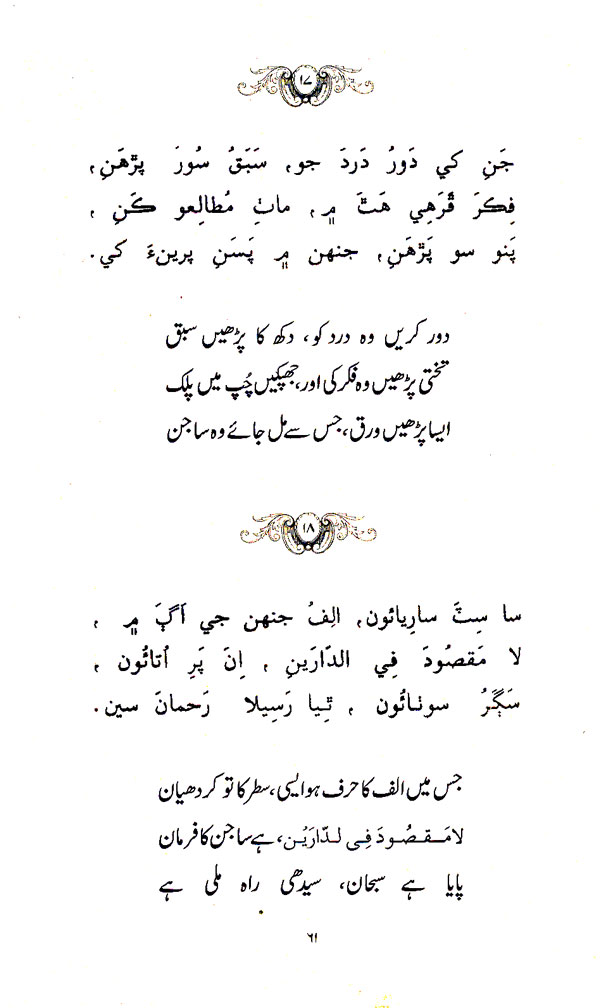 ١٧
جَنِ کي دَورُ دَردَ جو، سَبَقُ سُورَ پڙهَنِ،
فِڪرَ ڦَرَهِي هَٿَ ۾، ماٺِ مُطالِعو ڪَنِ ،
پَنو سو پَڙهَنِ، جنهن ۾ پَسَنِ پرينءَ کي.
دور کریں وہ درد کو، دکھ کا پڑھیں سبق
تختی پڑھیں وہ فکر کی اور، جھپکیں چُپ میں پلک
ایسا پڑھیں ورق، جس سے مل جائے وہ ساجن
١٨
سا سِٽَ سارِيائون، الِفُ جنهن جي اَڳَ ۾ ،
لا مَقصُودَ فِي الدّارَينِ ، اِنَ پَرِ اُتائُون ،
سَڳَرُ سونائُون ، ٿِيا رَسِيلا رَحمانَ سين.
جس میں الف کا حرف ہو ایسی، سطر کا تو کر دھیان
لَا مَقصُودَ فِی لدّارَیْن، ہے ساجن کا فرمان
پایا ہے سبحان، سیدھی راہ ملی ہے
٦١